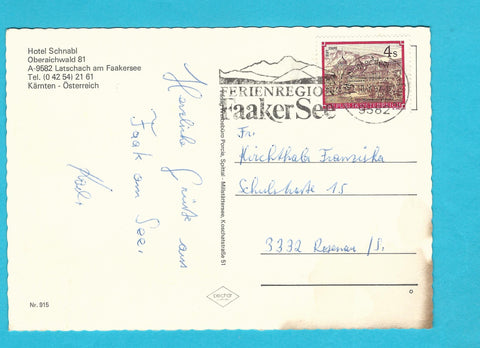 Hotel Schnabl
Oberaichwald 81
A-9582 Latschach am Faakersee
Tel. (0 42 54) 21 61
Kärnten - Österreich
Herzliche Grüße aus
Faak am See,
FERIENREGION
Faaker See
4s
REPUBLIK ÖSTERREICH
9582
Fr.
Kirchthaler Franziska
Schulstraße 15
3332 Rosenau/S.
Porcia, Spittal - Millstättersee, Koschatstraße 51
Nr. 915